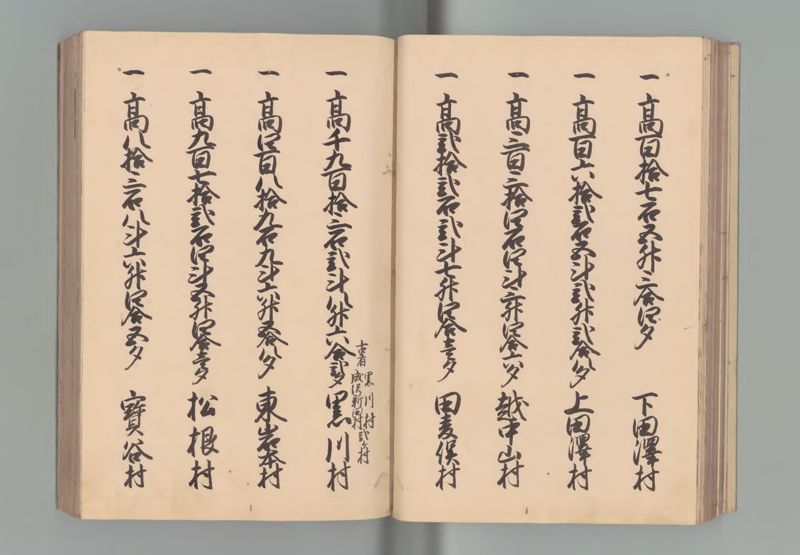 一高百拾七石五升三合四夕　下田澤村
一高百六拾弐石五斗弐升弐合八夕　上田澤村
一高三百三拾四石四斗三升四合六夕　越中山村
一高弐拾弐石弐斗七升四合壱夕　田麦俣村
一高千九百拾三石弐斗八升六合弐夕　黒川村
古者 黒川村
成沢新田村 弐ケ村
一高四百八拾九石九斗六升五合八夕　東岩本村
一高九百七拾弐石四斗五升四合壱夕　松根村
一高八拾三石八斗六升四合五夕　寶谷村